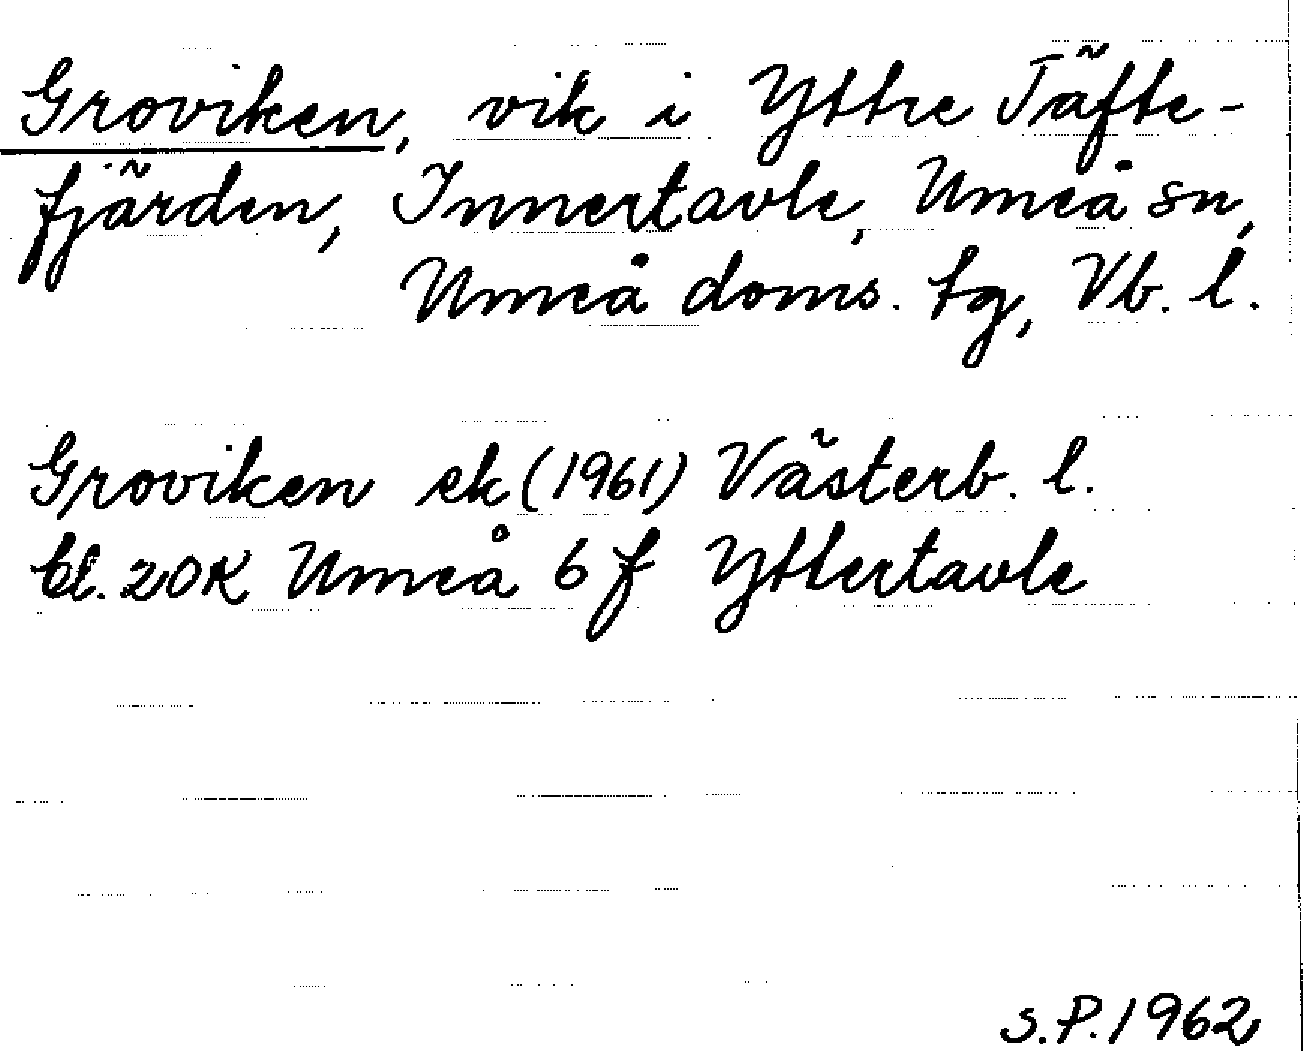 Groviken, vik i Yttre Täfte-
fjärden, Innertavle, Umeå sn,
Umeå doms. tg, Vb. l.
Groviken ek (1961) Västerb. l.
bl. 20K Umeå 6 f Yttertavle
S.P. 1962